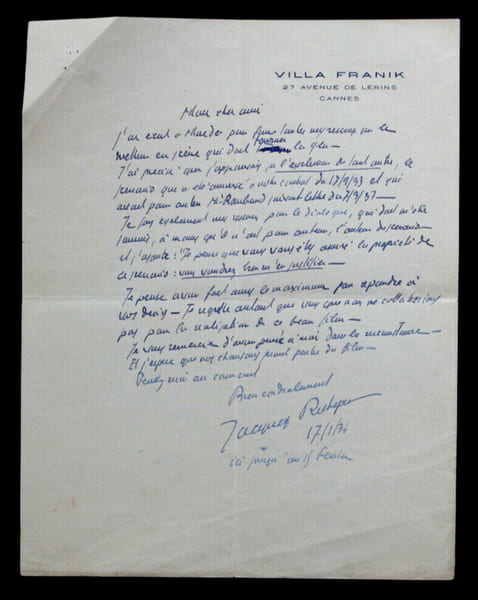 VILLA FRANIK
27 AVENUE DE LÉRINS
CANNES
Mon cher ami
J'ai écrit à pour faire toutes mes réserves sur le
metteur en scène qui doit tourner le film —
J'ai précisé que j'approuvais, à l'exclusion de tout autre, le
scénario qui a été annexé à notre contrat du 17/8/33 et qui
avait pour auteur Mr suivant lettre du 7/9/33 —
Je fais également mes réserves pour le dialogue, qui doit m'être
soumis, à moins qu'il n'ait pour auteur, l'auteur du scénario
et j'ajoute : "Je pense que vous vous êtes assuré la propriété de
ce scénario : vous voudrez bien m'en justifier —
Je pense avoir fait ainsi le maximum pour répondre à
vos — Je regrette autant que vous que nous ne collaborions
pas pour la réalisation de ce beau film —
Je vous remercie d'avoir pensé à moi dans la circonstance —
Et j'espère que nos chansons feront partie du film —
Tenez-moi au courant
Bien cordialement
Jacques Richepin
17/1/34
ici jusqu'au 15 février